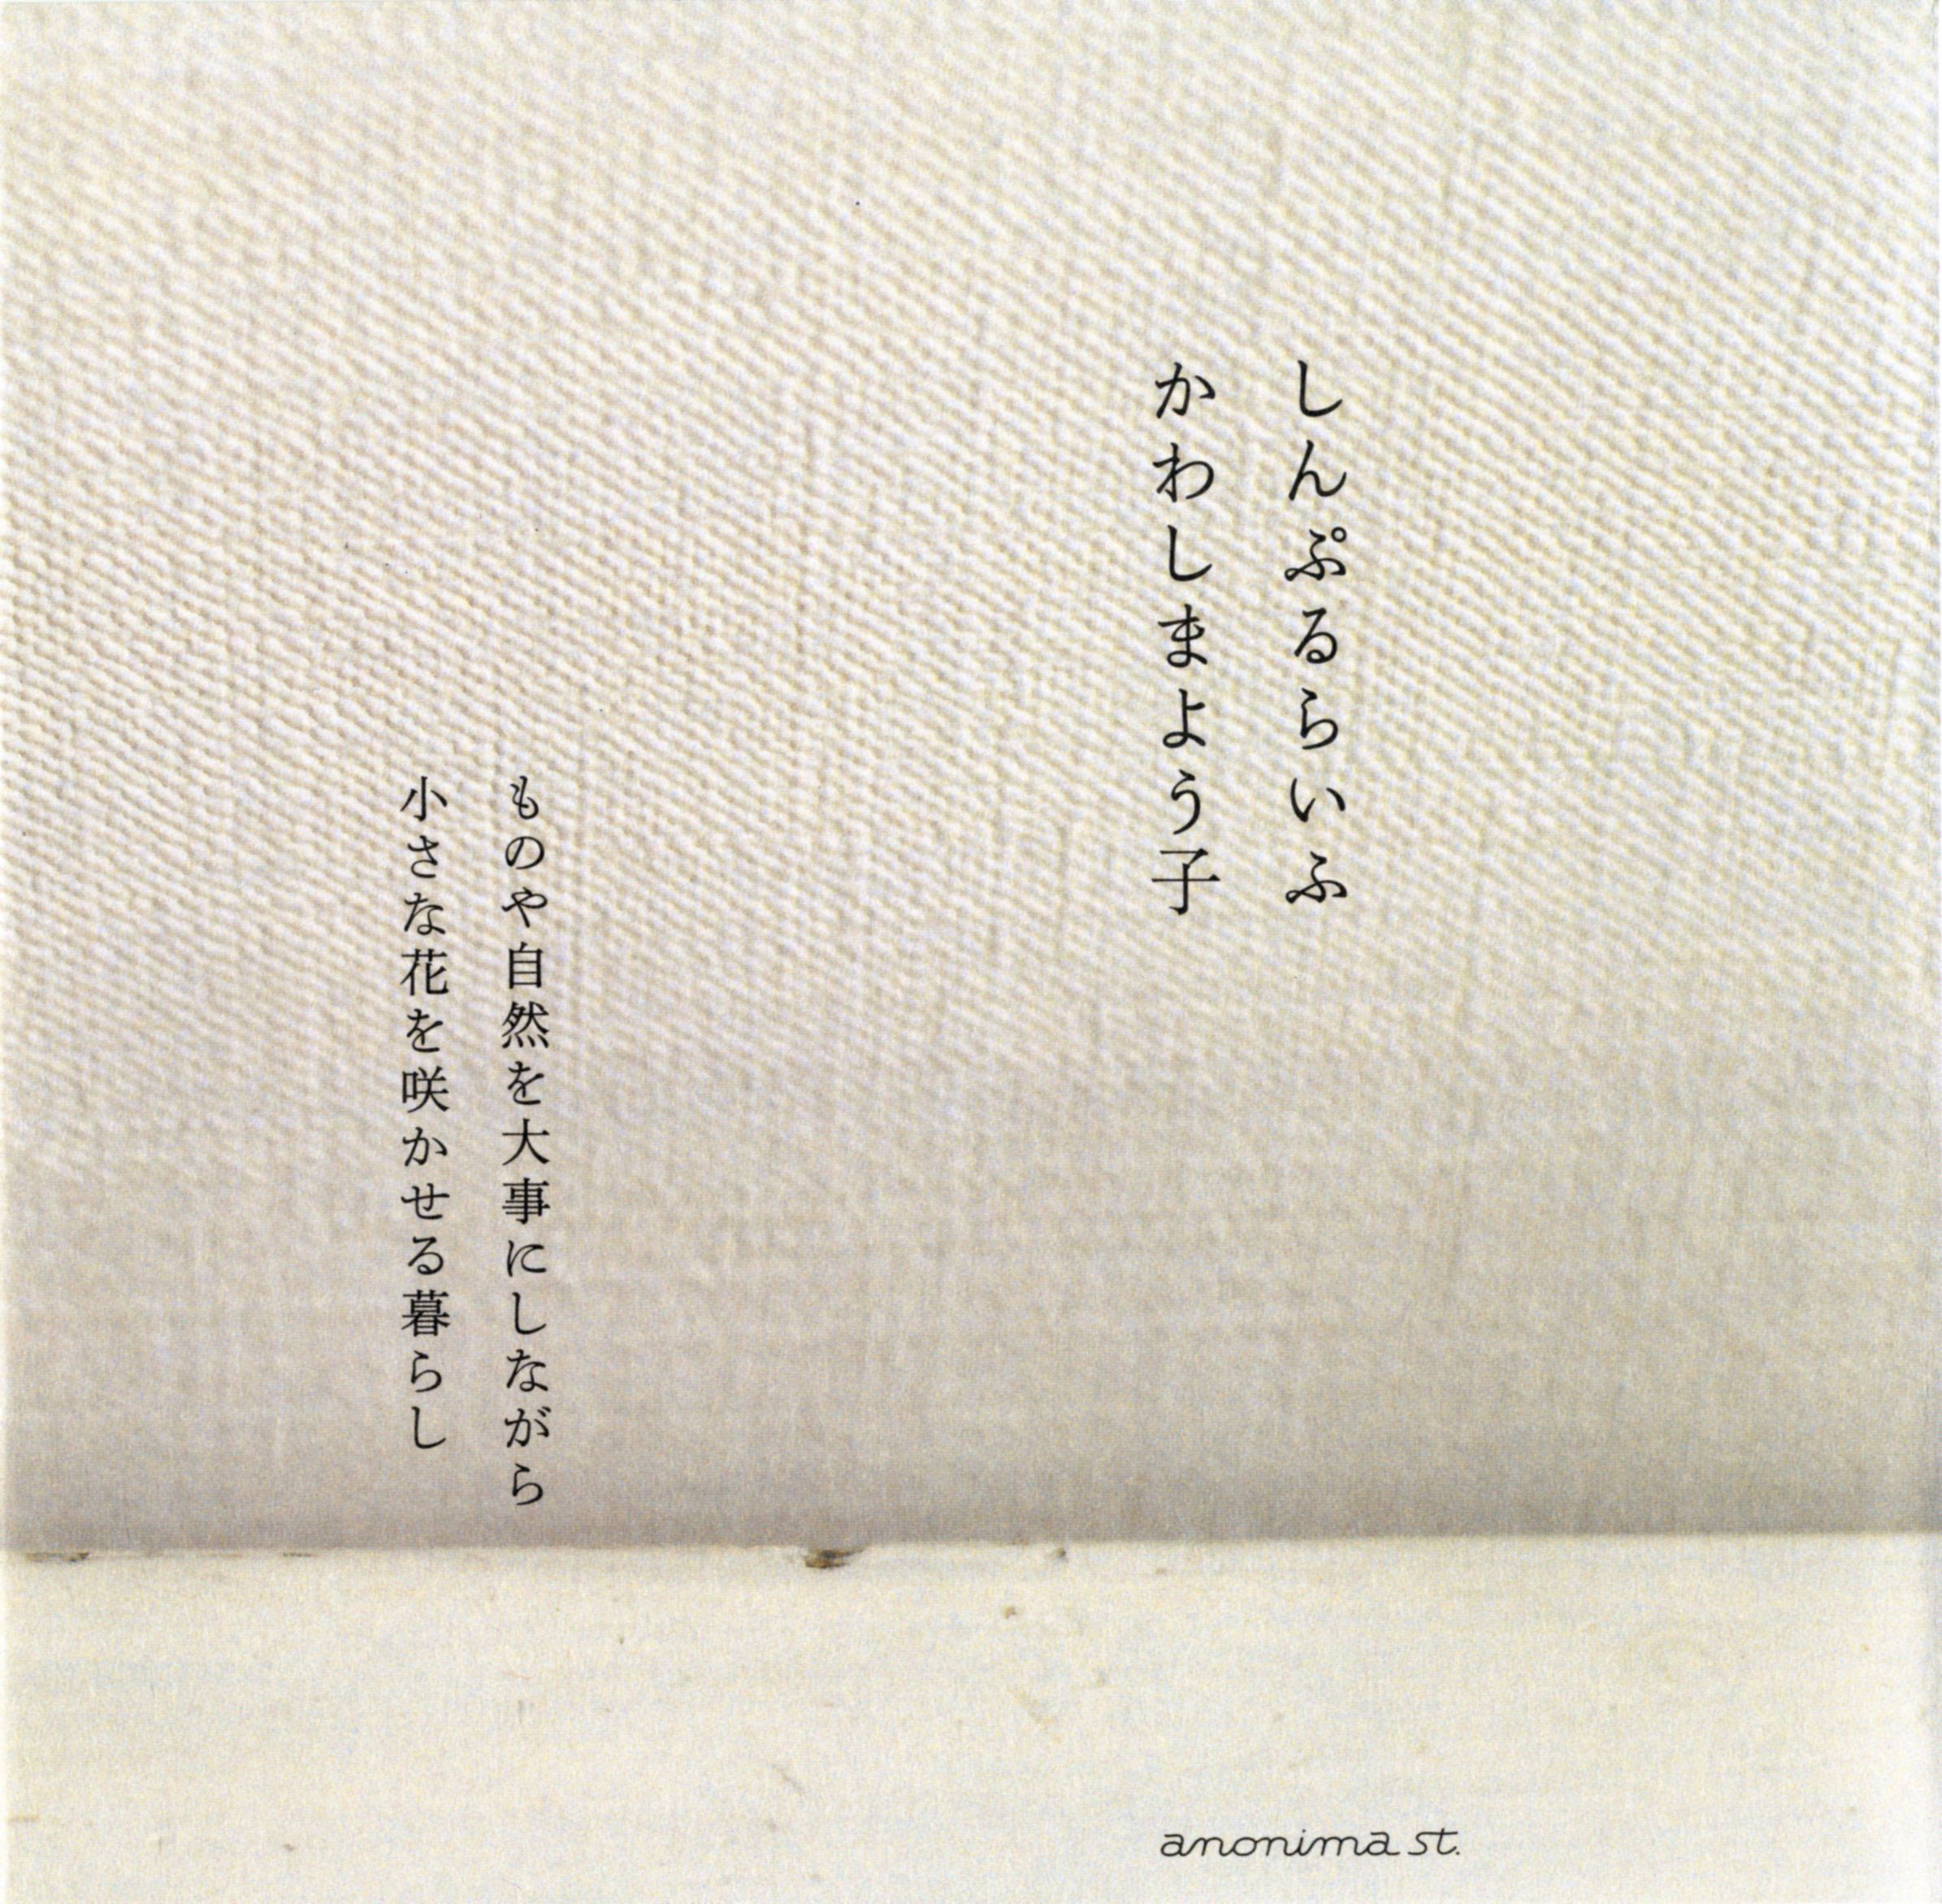 しんぷるらいふ
かわしまよう子
ものや自然を大事にしながら
小さな花を咲かせる暮らし
anonima st.